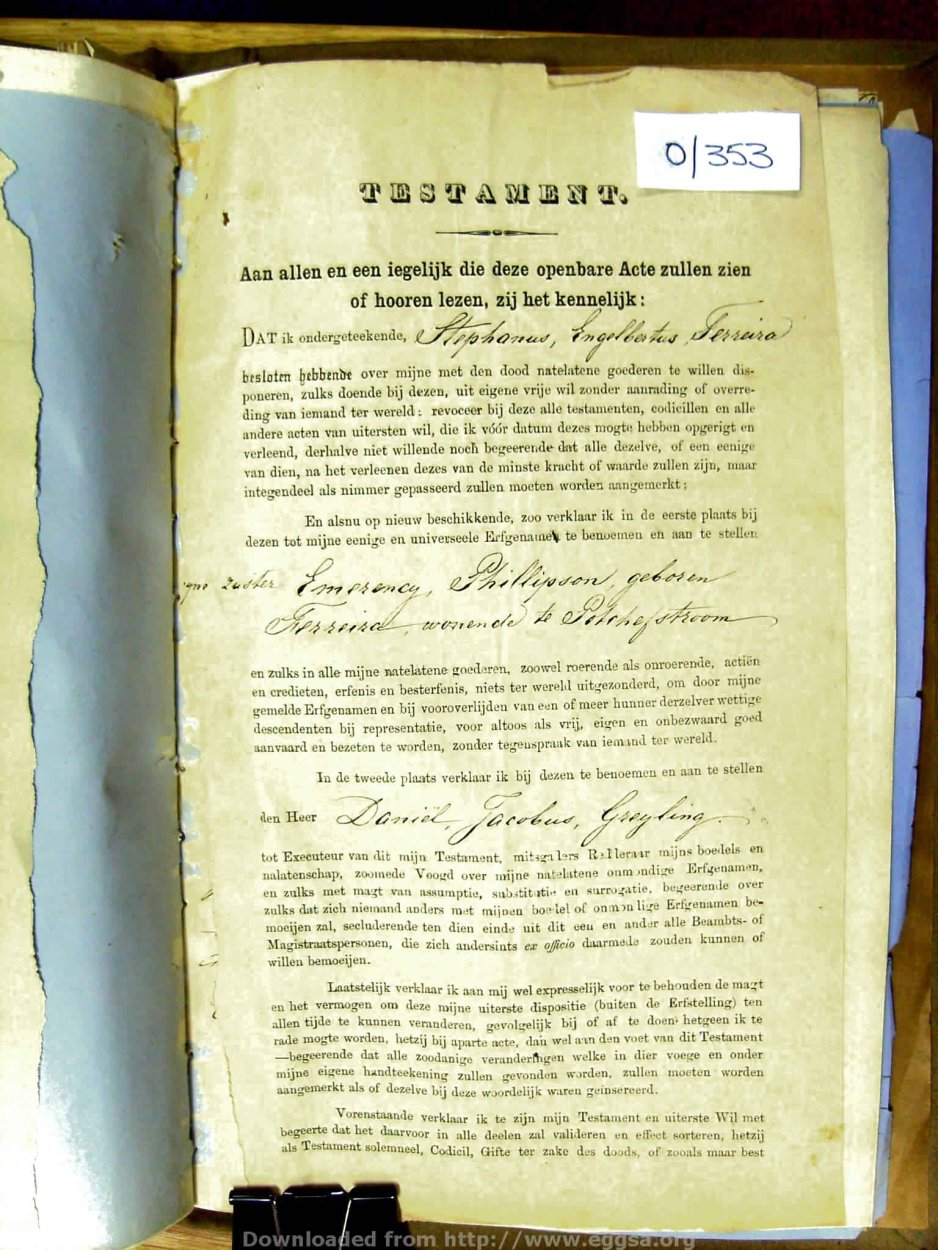 0/353
TESTAMENT.
Aan allen en een iegelijk die deze openbare Acte zullen zien
of hooren lezen, zij het kennelijk:
DAT ik ondergeteekende, Stephanus, Engelbertus, Ferreira
besloten hebbende over mijne met den dood natelatene goederen te willen dis-
poneren, zulks doende bij dezen, uit eigene vrije wil zonder aanrading of overre-
ding van iemand ter wereld: revoceer bij deze alle testamenten, codicillen en alle
andere acten van uitersten wil, die ik vóór datum dezes mogte hebben opgerigt en
verleend, derhalve niet willende noch begeerende dat alle dezelve, of een eenige
van dien, na het verleenen dezes van de minste kracht of waarde zullen zijn, maar
integendeel als nimmer gepasseerd zullen moeten worden aangemerkt;
En alsnu op nieuw beschikkende, zoo verklaar ik in de eerste plaats bij
dezen tot mijne eenige en universeele Erfgenamen te benoemen en aan te stellen
zuster Emerency, Phillipson, geboren
Ferreira, wonende te Potchefstroom
en zulks in alle mijne natelatene goederen, zoowel roerende als onroerende, actiën
en credieten, erfenis en besterfenis, niets ter wereld uitgezonderd, om door mijne
gemelde Erfgenamen en bij vooroverlijden van een of meer hunner derzelver wettige
descendenten bij representatie, voor altoos als vrij, eigen en onbezwaard goed
aanvaard en bezeten te worden, zonder tegenspraak van iemand ter wereld.
In de tweede plaats verklaar ik bij dezen te benoemen en aan te stellen
den Heer Daniël, Jacobus, Greyling.
tot Executeur van dit mijn Testament, mitsgaders Redderaar mijns boedels en
nalatenschap, zoomede Voogd over mijne natelatene onmondige Erfgenamen,
en zulks met magt van assumptie, substitutie en surrogatie, begeerende over
zulks dat zich niemand anders met mijnen boedel of onmondige Erfgenamen be-
moeijen zal, secluderende ten dien einde uit dit een en ander alle Beambts- of
Magistraatspersonen, die zich andersints ex officio daarmede zouden kunnen of
willen bemoeijen.
Laatstelijk verklaar ik aan mij wel expresselijk voor te behouden de magt
en het vermogen om deze mijne uiterste dispositie (buiten de Erfstelling) ten
allen tijde te kunnen veranderen, gevolgelijk bij of af te doen hetgeen ik te
rade mogte worden, hetzij bij aparte acte, dan wel aan den voet van dit Testament
—begeerende dat alle zoodanige veranderingen welke in dier voege en onder
mijne eigene handteekening zullen gevonden worden, zullen moeten worden
aangemerkt als of dezelve bij deze woordelijk waren geinsereerd.
Vorenstaande verklaar ik te zijn mijn Testament en uiterste Wil met
begeerte dat het daarvoor in alle deelen zal valideren en effect sorteren, hetzij
als Testament solemneel, Codicil, Gifte ter zake des doods, of zooals maar best
Downloaded from http://www.eggsa.org